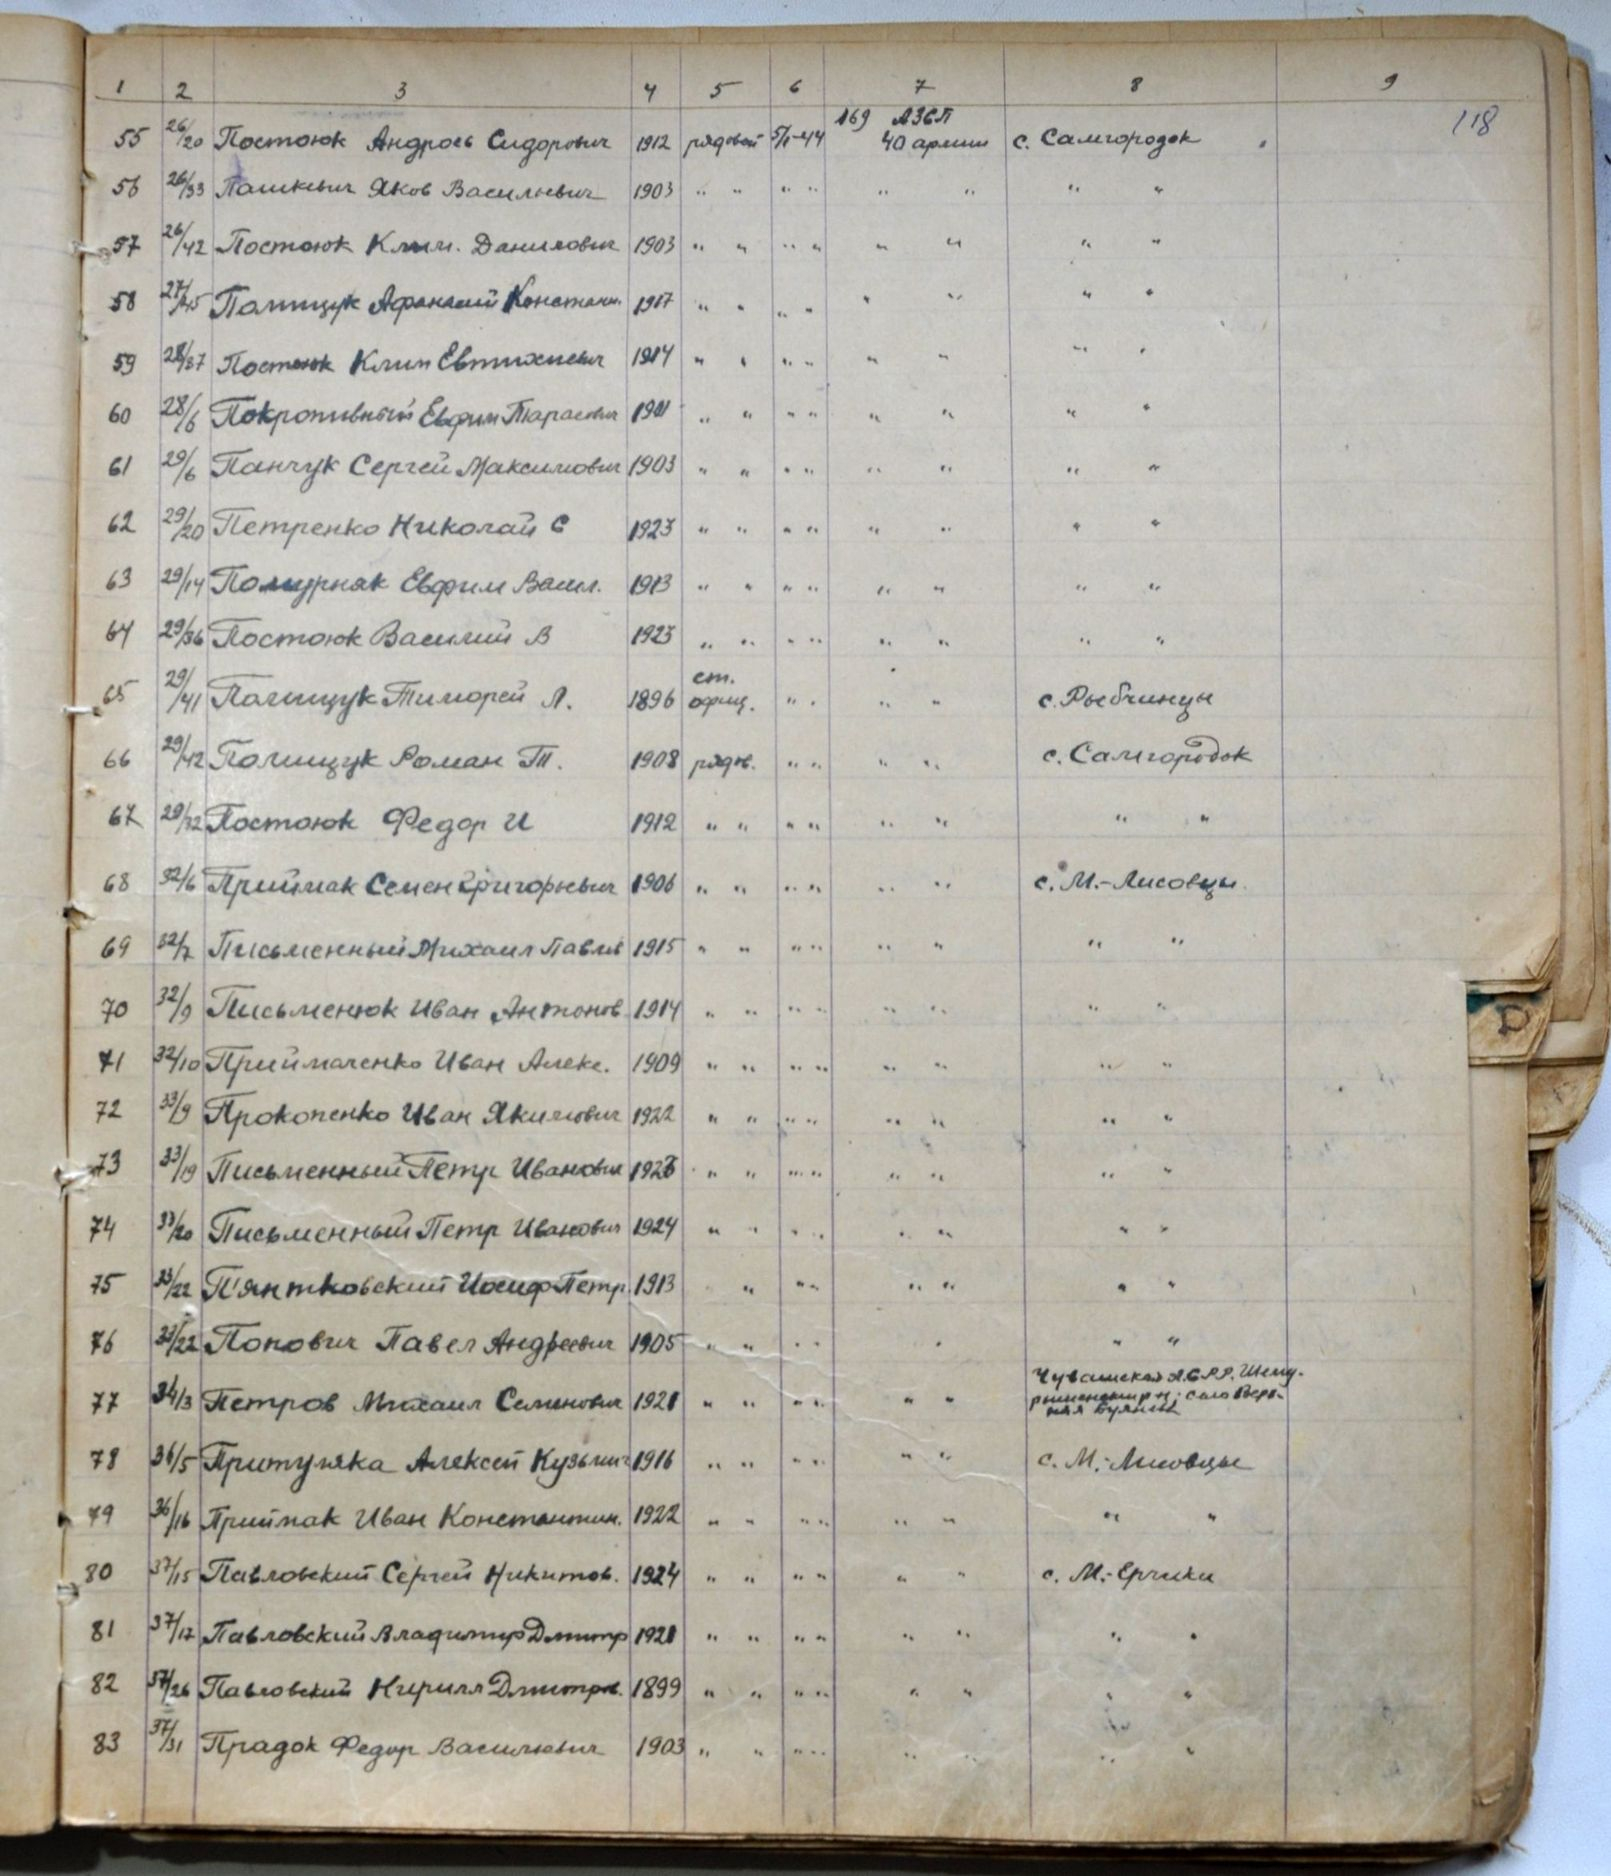 1 2 3 4 5 6 7 8 9
118
169 АЗСП
55 26/20 Постоюк Андрось Сидорович 1912 рядовой 5/I-44 40 армии с. Самгородок "
56 26/33 Пашкевич Яков Васильевич 1903 " " " " " " " "
57 26/42 Постоюк Клим. Данилович 1903 " " " " " " " "
58 27/45 Полищук Афанасий Констан. 1917 " " " " " " " "
59 28/37 Постоюк Клим Евтихиевич 1914 " " " " " " " "
60 28/6 Покропивный Евфим Тарасович 1901 " " " " " " " "
61 29/6 Панчук Сергей Максимович 1903 " " " " " " " "
62 29/20 Петренко Николай С 1923 " " " " " " " "
63 29/14 Евфим Васил. 1913 " " " " " " " "
64 29/36 Постоюк Василий В 1923 " " " " " " " "
ст.
65 29/41 Полищук Тимофей Л. 1896 офиц. " " " " с. Рыбчинцы
66 29/42 Полищук Роман Т. 1908 рядов. " " " " с. Самгородок
67 29/32 Постоюк Федор И 1912 " " " " " " " "
68 32/6 Приймак Семен Григорьевич 1906 " " " " " " с. М.-Лисовцы.
69 32/7 Письменный Михаил Павлов 1915 " " " " " " " "
70 32/9 Письменюк Иван Антонов 1914 " " " " " " " "
71 32/10 Приймаченко Иван Алекс. 1909 " " " " " " " "
72 33/9 Прокопенко Иван Якимович 1922 " " " " " " " "
73 33/19 Письменный Петр Иванович 1926 " " " " " " " "
74 33/20 Письменный Петр Иванович 1924 " " " " " " " "
75 33/22 П'янтковский Иосиф Петр. 1913 " " " " " " "
76 33/22 Попович Павел Андреевич 1905 " " " " " " "
Чувашская А.С.Р.Р. Шему-
77 34/3 Петров Михаил Семенович 1921 " " " " " " село Верх-
няя
78 36/5 Притуляка Алексей Кузьмич 1916 " " " " " " с. М.-Лисовцы
79 36/16 Приймак Иван Константин. 1922 " " " " " " " "
80 37/15 Павловский Сергей Никитов. 1924 " " " " " " с. М.-Ерчики
81 37/17 Павловский Владимир Дмитр 1921 " " " " " " " "
82 37/26 Павловский Кирилл Дмитров. 1899 " " " " " " " "
83 37/31 Прадок Федор Васильевич 1903 " " " " " " " "